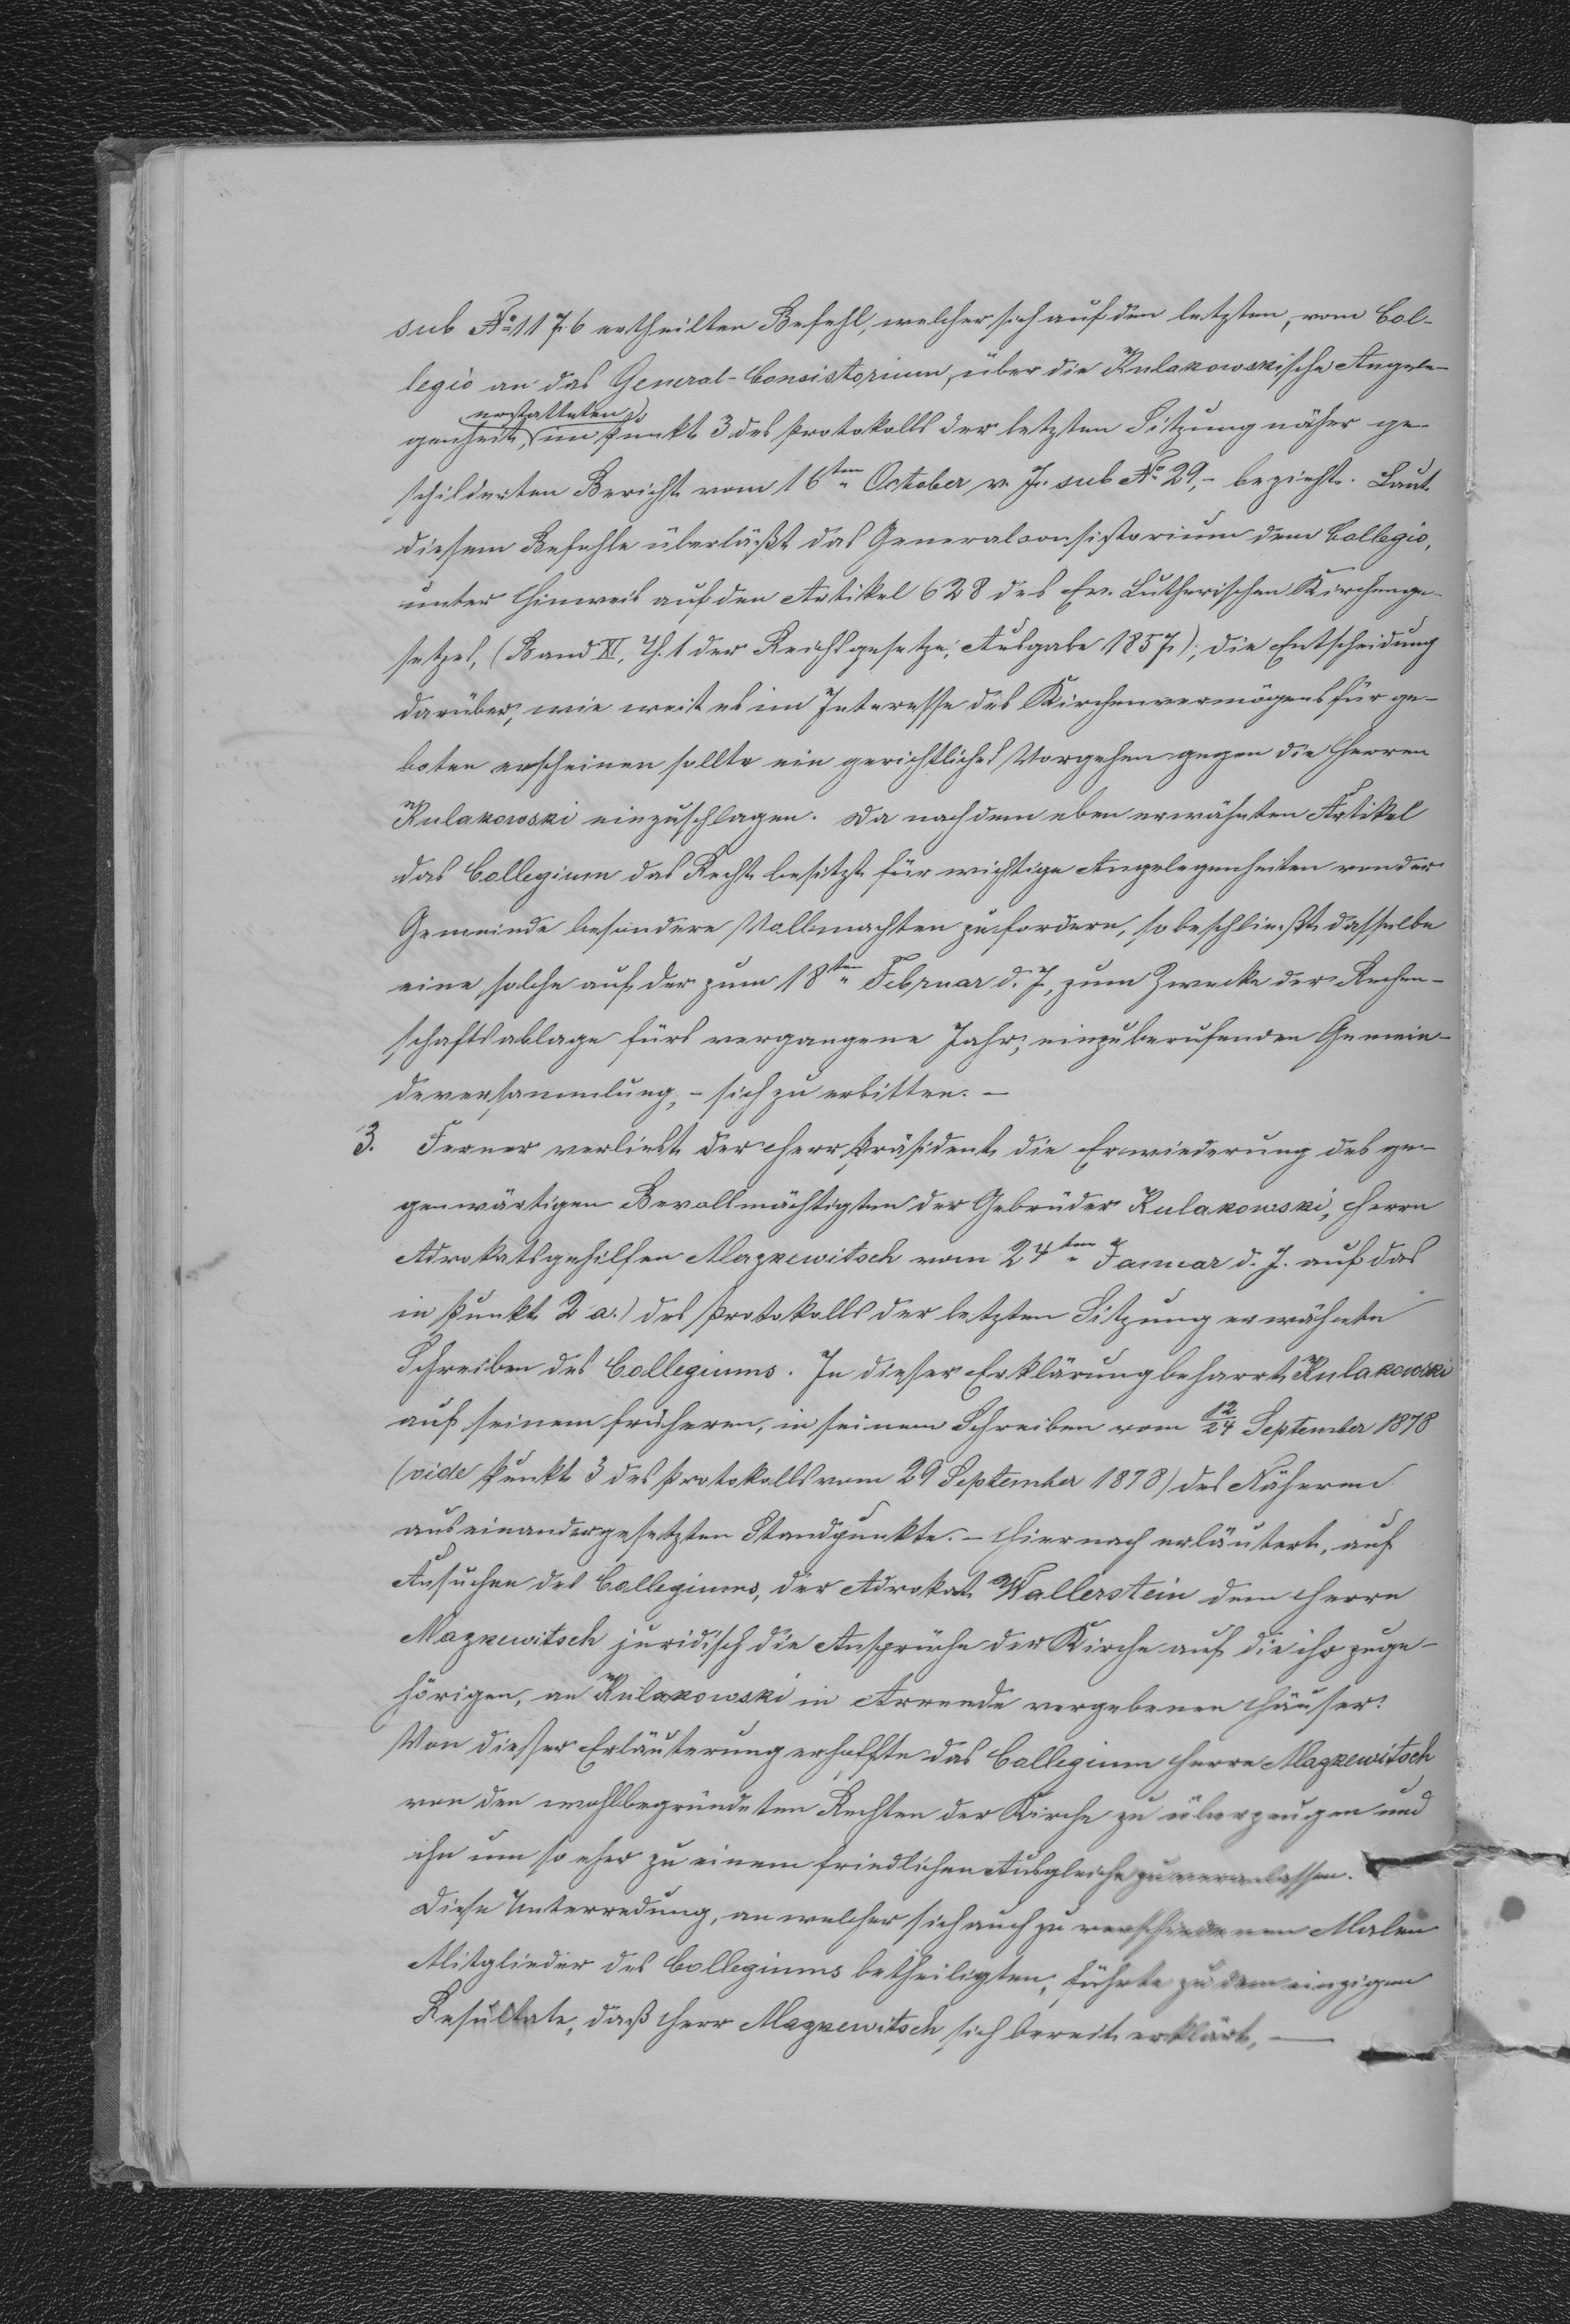 sub № 1176 ertheilten Befehl, welcher sich auf den letzten, vom Col-
legio an das General-Consistorium, über die Kulakowskische Angele-
erstatteten
genheit, im Punkt 3 des Protokolls der letzten Sitzung näher ge-
schilderten Bericht vom 16ten October v. J. sub № 29,- bezieht. Laut
diesem Befehle überläßt das Generalconsistorium dem Collegio,
unter Hinweis auf den Artikel 628 des Ev. Lutherischen Kirchenge-
setzes, (Band XI, Th. 1 der Reichsgesetze, Ausgabe 1857), die Entscheidung
darüber, wie weit es im Interesse des Kirchenvermögens für ge-
boten erscheinen sollte ein gerichtliches Vorgehen gegen die Herren
Kulakowski einzuschlagen. Da nach dem eben erwähnten Artikel
das Collegium das Recht besitzt für wichtige Angelegenheiten von der
Gemeinde besondere Vollmachten zu fordern, so beschließt dasselbe
eine solche auf der zum 18ten Februar d. J., zum Zwecke der Rechen-
schaftsablage fürs vergangene Jahr, einzuberufenden Gemein-
deversammlung, - sich zu erbitten. -
3. Ferner verliest der Herr Präsident die Erwiederung des ge-
genwärtigen Bevollmächtigten der Gebrüder Kulakowski, Herrn
Advokatsgehilfen Mazkewitsch vom 24ten Januar d. J. auf das
in Punkt 2 a.) des Protokolls der letzten Sitzung erwähnte
Schreiben des Collegiums. In dieser Erklärung beharrt Kulakowski
auf seinem früheren, in seinem Schreiben vom 12/24 September 1878
(vide Punkt 3 des Protokolls vom 29 September 1878) des Näheren
auseinandergesetzten Standpunkte. - Hiernach erläutert, auf
Ansuchen des Collegiums, der Advokat Wallerstein dem Herrn
Mazkewitsch juridisch die Ansprüche der Kirche auf die ihr zuge-
hörigen, an Kulakowski in Arrende vergebenen Häuser.
Von dieser Erläuterung erhoffte das Collegium Herrn Mazkewitsch
von den wohlbegründeten Rechten der Kirche zu überzeugen und
ihn um so eher zu einem friedlichen Ausgleiche zu veranlassen.
Diese Unterredung, an welcher sich auch zu verschiedenen Malen
Mitglieder des Collegiums betheiligten, führte zu dem einzigen
Resultate, daß Herr Mazkewitsch sich bereit erklärt, —